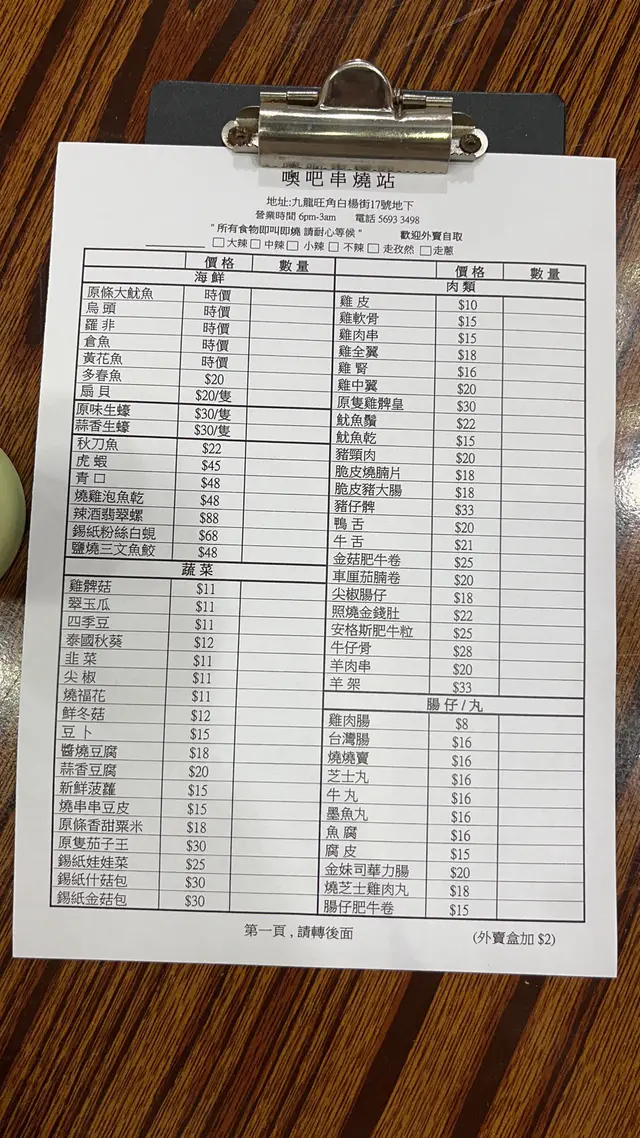 噢吧串燒站
地址:九龍旺角白楊街17號地下
營業時間 6pm-3am 電話 5693 3498
"所有食物即叫即燒 請耐心等候" 歡迎外賣自取
大辣 中辣 小辣 不辣 走孜然 走蔥
價格 數量
海鮮
原條大魷魚 時價
烏頭 時價
羅非 時價
倉魚 時價
黃花魚 時價
多春魚 $20
扇貝 $20/隻
原味生蠔 $30/隻
蒜香生蠔 $30/隻
秋刀魚 $22
虎蝦 $45
青口 $48
燒雞泡魚乾 $48
辣酒翡翠螺 $88
錫紙粉絲白蜆 $68
鹽燒三文魚鮫 $48
蔬菜
雞髀菇 $11
翠玉瓜 $11
四季豆 $11
泰國秋葵 $12
韭菜 $11
尖椒 $11
燒福花 $11
鮮冬菇 $12
豆卜 $15
醬燒豆腐 $18
蒜香豆腐 $20
新鮮菠蘿 $15
燒串串豆皮 $15
原條香甜粟米 $18
原隻茄子王 $30
錫紙娃娃菜 $25
錫紙什菇包 $30
錫紙金菇包 $30
價格 數量
肉類
雞皮 $10
雞軟骨 $15
雞肉串 $15
雞全翼 $18
雞腎 $16
雞中翼 $20
原隻雞髀皇 $30
魷魚鬚 $22
魷魚乾 $15
豬頸肉 $20
脆皮燒腩片 $18
脆皮豬大腸 $18
豬仔髀 $33
鴨舌 $20
牛舌 $21
金菇肥牛卷 $25
車厘茄腩卷 $20
尖椒腸仔 $18
照燒金錢肚 $22
安格斯肥牛粒 $25
牛仔骨 $28
羊肉串 $20
羊架 $33
腸仔/丸
雞肉腸 $8
台灣腸 $16
燒燒賣 $16
芝士丸 $16
牛丸 $16
墨魚丸 $16
魚腐 $16
腐皮 $15
金妹司華力腸 $20
燒芝士雞肉丸 $18
腸仔肥牛卷 $15
第一頁,請轉後面
(外賣盒加 $2)